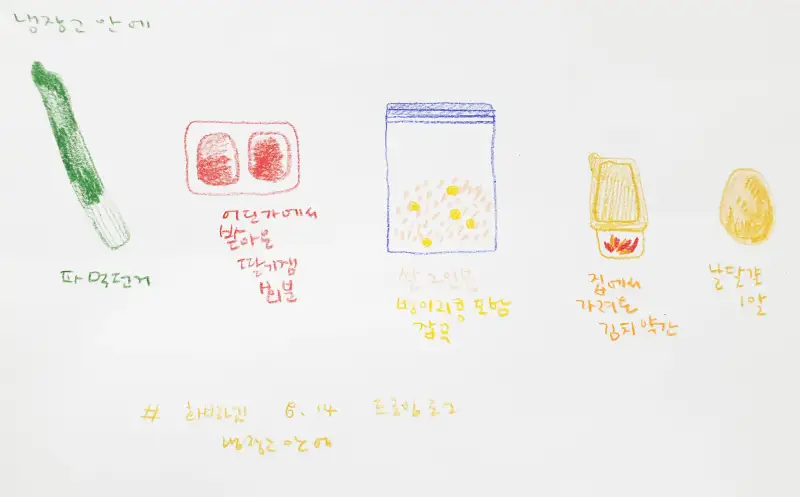 냉장고 안에
파 먹던거
어딘가에서
받아온
딸기잼
1회분
쌀 2인분
병아리콩 포함
잡곡
집에서
가져온
김치 약간
날달걀
1알
# 6.14 드로잉로그
냉장고 안에